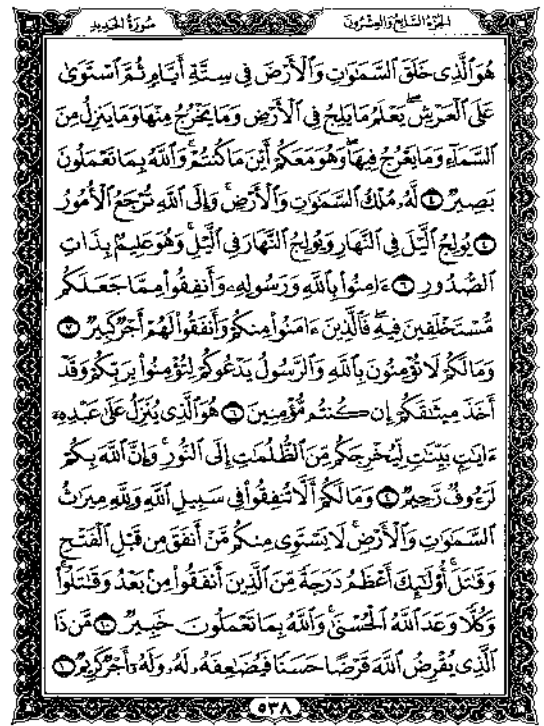 الجزء السابع والعشرون
سورة الحديد
هُوَ ٱلَّذِى خَلَقَ ٱلسَّمَٰوَٰتِ وَٱلْأَرْضَ فِى سِتَّةِ أَيَّامٍ ثُمَّ ٱسْتَوَىٰ
عَلَى ٱلْعَرْشِ ۖ يَعْلَمُ مَا يَلِجُ فِى ٱلْأَرْضِ وَمَا يَخْرُجُ مِنْهَا وَمَا يَنزِلُ مِنَ
ٱلسَّمَآءِ وَمَا يَعْرُجُ فِيهَا ۖ وَهُوَ مَعَكُمْ أَيْنَ مَا كُنتُمْ ۚ وَٱللَّهُ بِمَا تَعْمَلُونَ
بَصِيرٌ ۝ لَّهُۥ مُلْكُ ٱلسَّمَٰوَٰتِ وَٱلْأَرْضِ ۚ وَإِلَى ٱللَّهِ تُرْجَعُ ٱلْأُمُورُ
۝ يُولِجُ ٱلَّيْلَ فِى ٱلنَّهَارِ وَيُولِجُ ٱلنَّهَارَ فِى ٱلَّيْلِ ۚ وَهُوَ عَلِيمٌۢ بِذَاتِ
ٱلصُّدُورِ ۝ ءَامِنُوا۟ بِٱللَّهِ وَرَسُولِهِۦ وَأَنفِقُوا۟ مِمَّا جَعَلَكُم
مُّسْتَخْلَفِينَ فِيهِ ۖ فَٱلَّذِينَ ءَامَنُوا۟ مِنكُمْ وَأَنفَقُوا۟ لَهُمْ أَجْرٌ كَبِيرٌ ۝
وَمَا لَكُمْ لَا تُؤْمِنُونَ بِٱللَّهِ ۙ وَٱلرَّسُولُ يَدْعُوكُمْ لِتُؤْمِنُوا۟ بِرَبِّكُمْ وَقَدْ
أَخَذَ مِيثَٰقَكُمْ إِن كُنتُم مُّؤْمِنِينَ ۝ هُوَ ٱلَّذِى يُنَزِّلُ عَلَىٰ عَبْدِهِۦٓ
ءَايَٰتٍۭ بَيِّنَٰتٍ لِّيُخْرِجَكُم مِّنَ ٱلظُّلُمَٰتِ إِلَى ٱلنُّورِ ۚ وَإِنَّ ٱللَّهَ بِكُمْ
لَرَءُوفٌ رَّحِيمٌ ۝ وَمَا لَكُمْ أَلَّا تُنفِقُوا۟ فِى سَبِيلِ ٱللَّهِ وَلِلَّهِ مِيرَٰثُ
ٱلسَّمَٰوَٰتِ وَٱلْأَرْضِ ۚ لَا يَسْتَوِى مِنكُم مَّنْ أَنفَقَ مِن قَبْلِ ٱلْفَتْحِ
وَقَٰتَلَ ۚ أُو۟لَٰٓئِكَ أَعْظَمُ دَرَجَةً مِّنَ ٱلَّذِينَ أَنفَقُوا۟ مِنۢ بَعْدُ وَقَٰتَلُوا۟ ۚ
وَكُلًّا وَعَدَ ٱللَّهُ ٱلْحُسْنَىٰ ۚ وَٱللَّهُ بِمَا تَعْمَلُونَ خَبِيرٌ ۝ مَّن ذَا
ٱلَّذِى يُقْرِضُ ٱللَّهَ قَرْضًا حَسَنًا فَيُضَٰعِفَهُۥ لَهُۥ وَلَهُۥٓ أَجْرٌ كَرِيمٌ ۝
٥٣٨